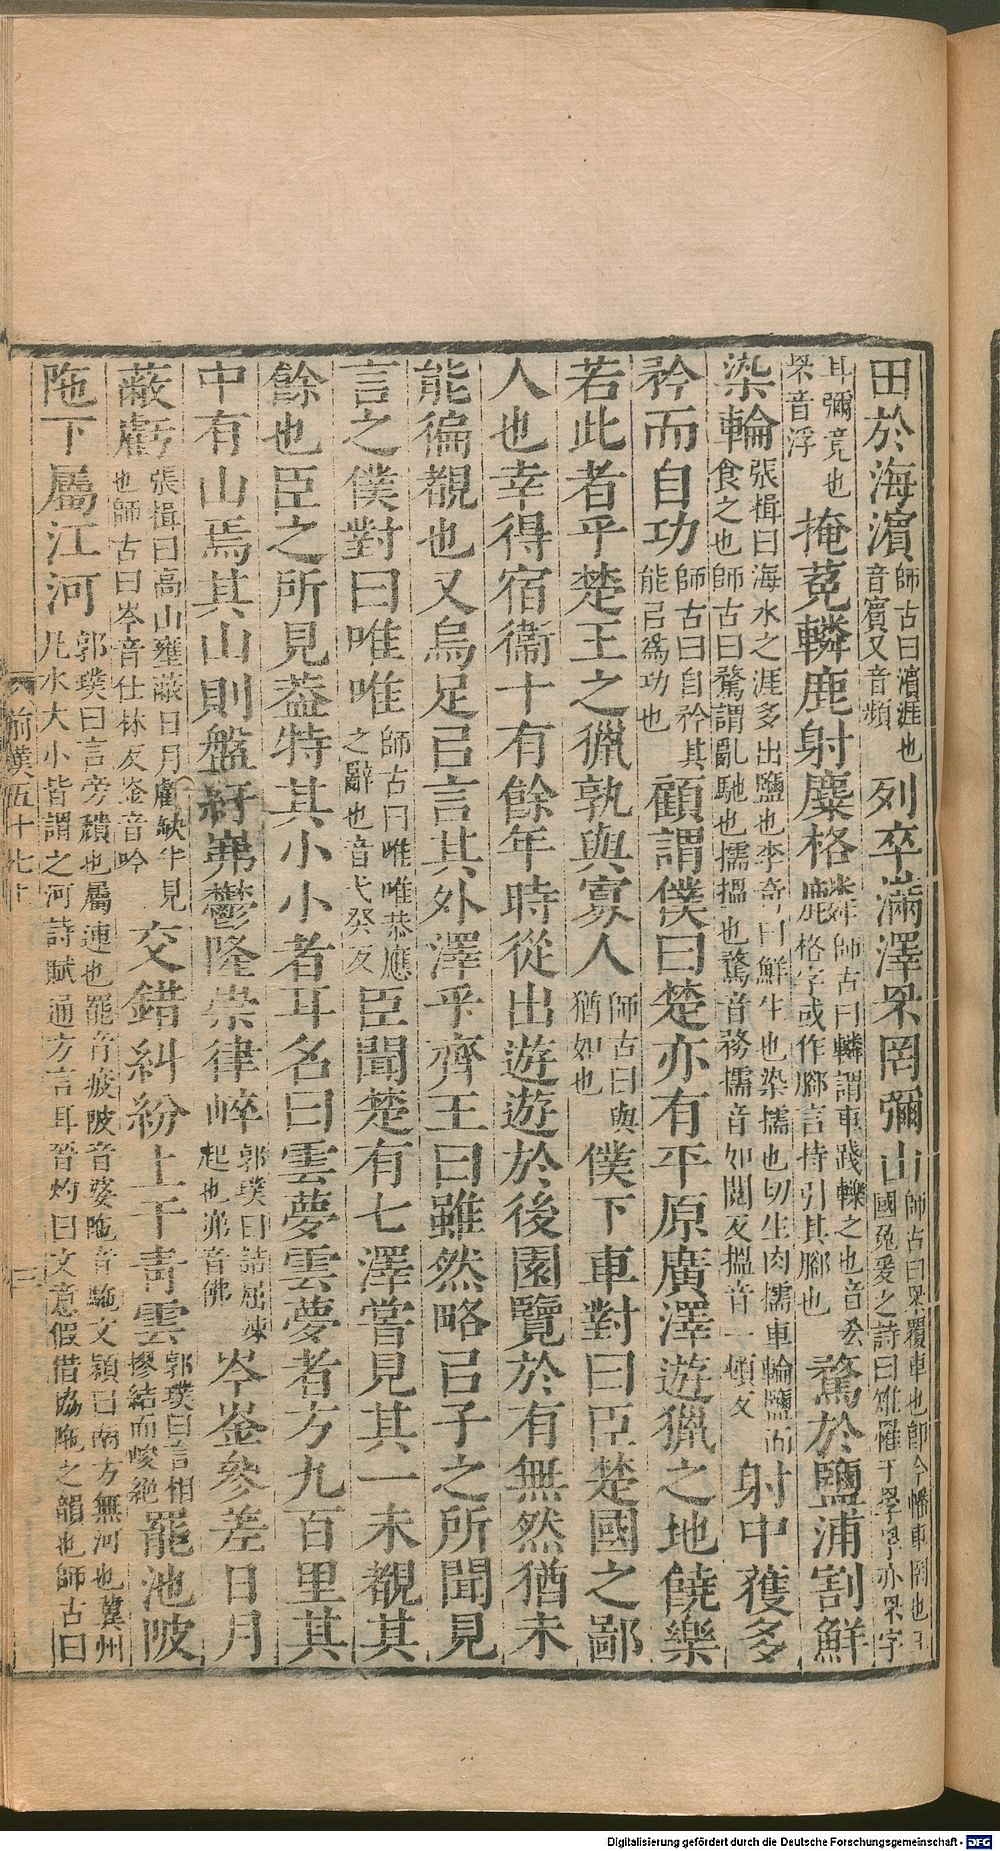 田於海濵師古曰濵涯也音賓又音頻列卒滿澤罘罔彌山師古曰罘覆車也卽今幡車罔也王國兔爰之詩曰雉罹于罦罦亦罘字
耳彌竟也罘音浮掩菟轔鹿射麋格麟師古曰轔謂車踐轢之也音吝格字或作腳言持引其腳也騖於鹽浦割鮮
染輪張揖曰海水之涯多出鹽也李奇曰鮮生也染擩也切生肉擩車輪鹽而食之也師古曰騖謂亂馳也擩搵也騖音務擩音如閱反搵音一頓反射中獲多
矜而自功師古曰自矜其能㠯爲功也顧謂僕曰楚亦有平原廣澤遊獵之地饒樂
若此者乎楚王之獵孰與寡人師古曰與猶如也僕下車對曰臣楚國之鄙
人也幸得宿衞十有餘年時從出遊遊於後園覽於有無然猶未
能徧覩也又烏足㠯言其外澤乎齊王曰雖然略㠯子之所聞見
言之僕對曰唯唯師古曰唯唯恭應之辭也音弋癸反臣聞楚有七澤嘗見其一未覩其
餘也臣之所見葢特其小小者耳名曰雲夢雲夢者方九百里其
中有山焉其山則盤紆岪鬱隆崇律崒郭璞曰詰屈竦起也岪音佛岑崟參差日月
蔽虧張揖曰高山壅蔽日月虧缺半見也師古曰岑音仕林反崟音吟交錯糾紛上干靑雲郭璞曰言相摎結而峻絶罷池陂
陁下屬江河郭璞曰言旁穨也屬連也罷音疲陂音婆陁音駞文潁曰南方無河也冀州凡水大小皆謂之河詩賦通方言耳晉灼曰文意假借協陁之韻也師古曰
前漢五十七上
三
Digitalisierung gefördert durch die Deutsche Forschungsgemeinschaft - DFG